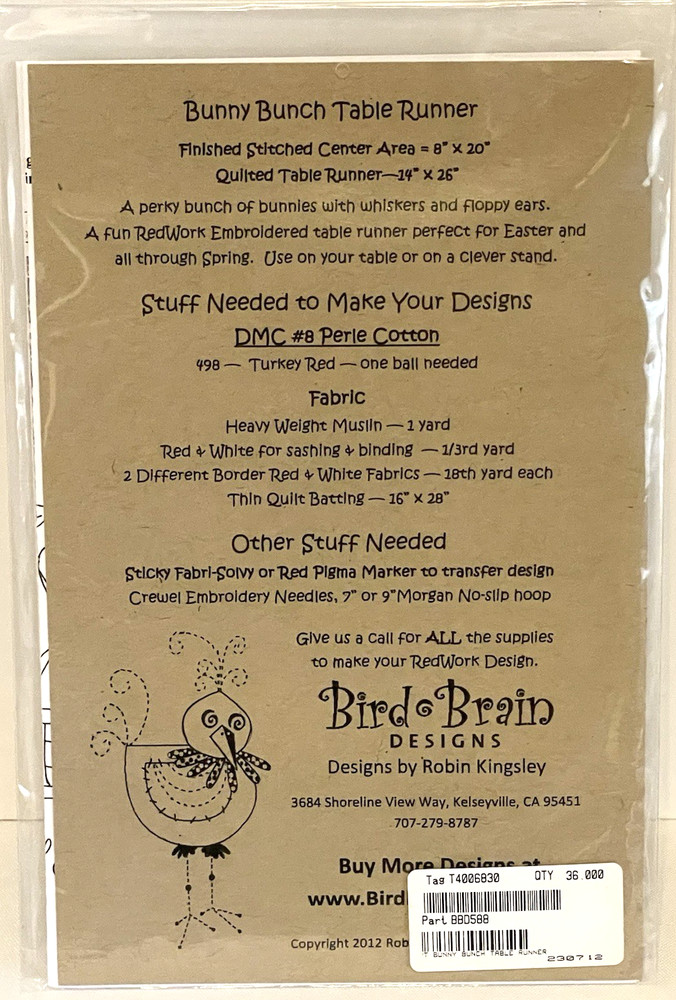 Bunny Bunch Table Runner
Finished Stitched Center Area = 8" X 20"
Quilted Table Runner—14" X 26"
A perky bunch of bunnies with whiskers and floppy ears.
A fun RedWork Embroidered table runner perfect for Easter and
all through Spring. Use on your table or on a clever stand.
Stuff Needed to Make Your Designs
DMC #8 Perle Cotton
498 — Turkey Red — one ball needed
Fabric
Heavy Weight Muslin — 1 yard
Red & White for sashing & binding — 1/3rd yard
2 Different Border Red & White Fabrics — 18th yard each
Thin Quilt Batting — 16" X 28"
Other Stuff Needed
Sticky Fabri-Solvy or Red Pigma Marker to transfer design
Crewel Embroidery Needles, 7" or 9"Morgan No-slip hoop
Give us a call for ALL the supplies
to make your RedWork Design.
Bird Brain
DESIGNS
Designs by Robin Kingsley
3684 Shoreline View Way, Kelseyville, CA 95451
707-279-8787
Buy More Designs at
www.Bird
Copyright 2012 Rob
Tag T4006830 QTY 36.000
Part BBD588
T BUNNY BUNCH TABLE RUNNER
230712